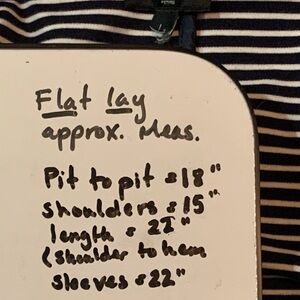 Flat lay
approx. Meas.
Pit to pit = 18"
shoulders = 15"
length = 22"
(shoulder to hem
sleeves = 22"